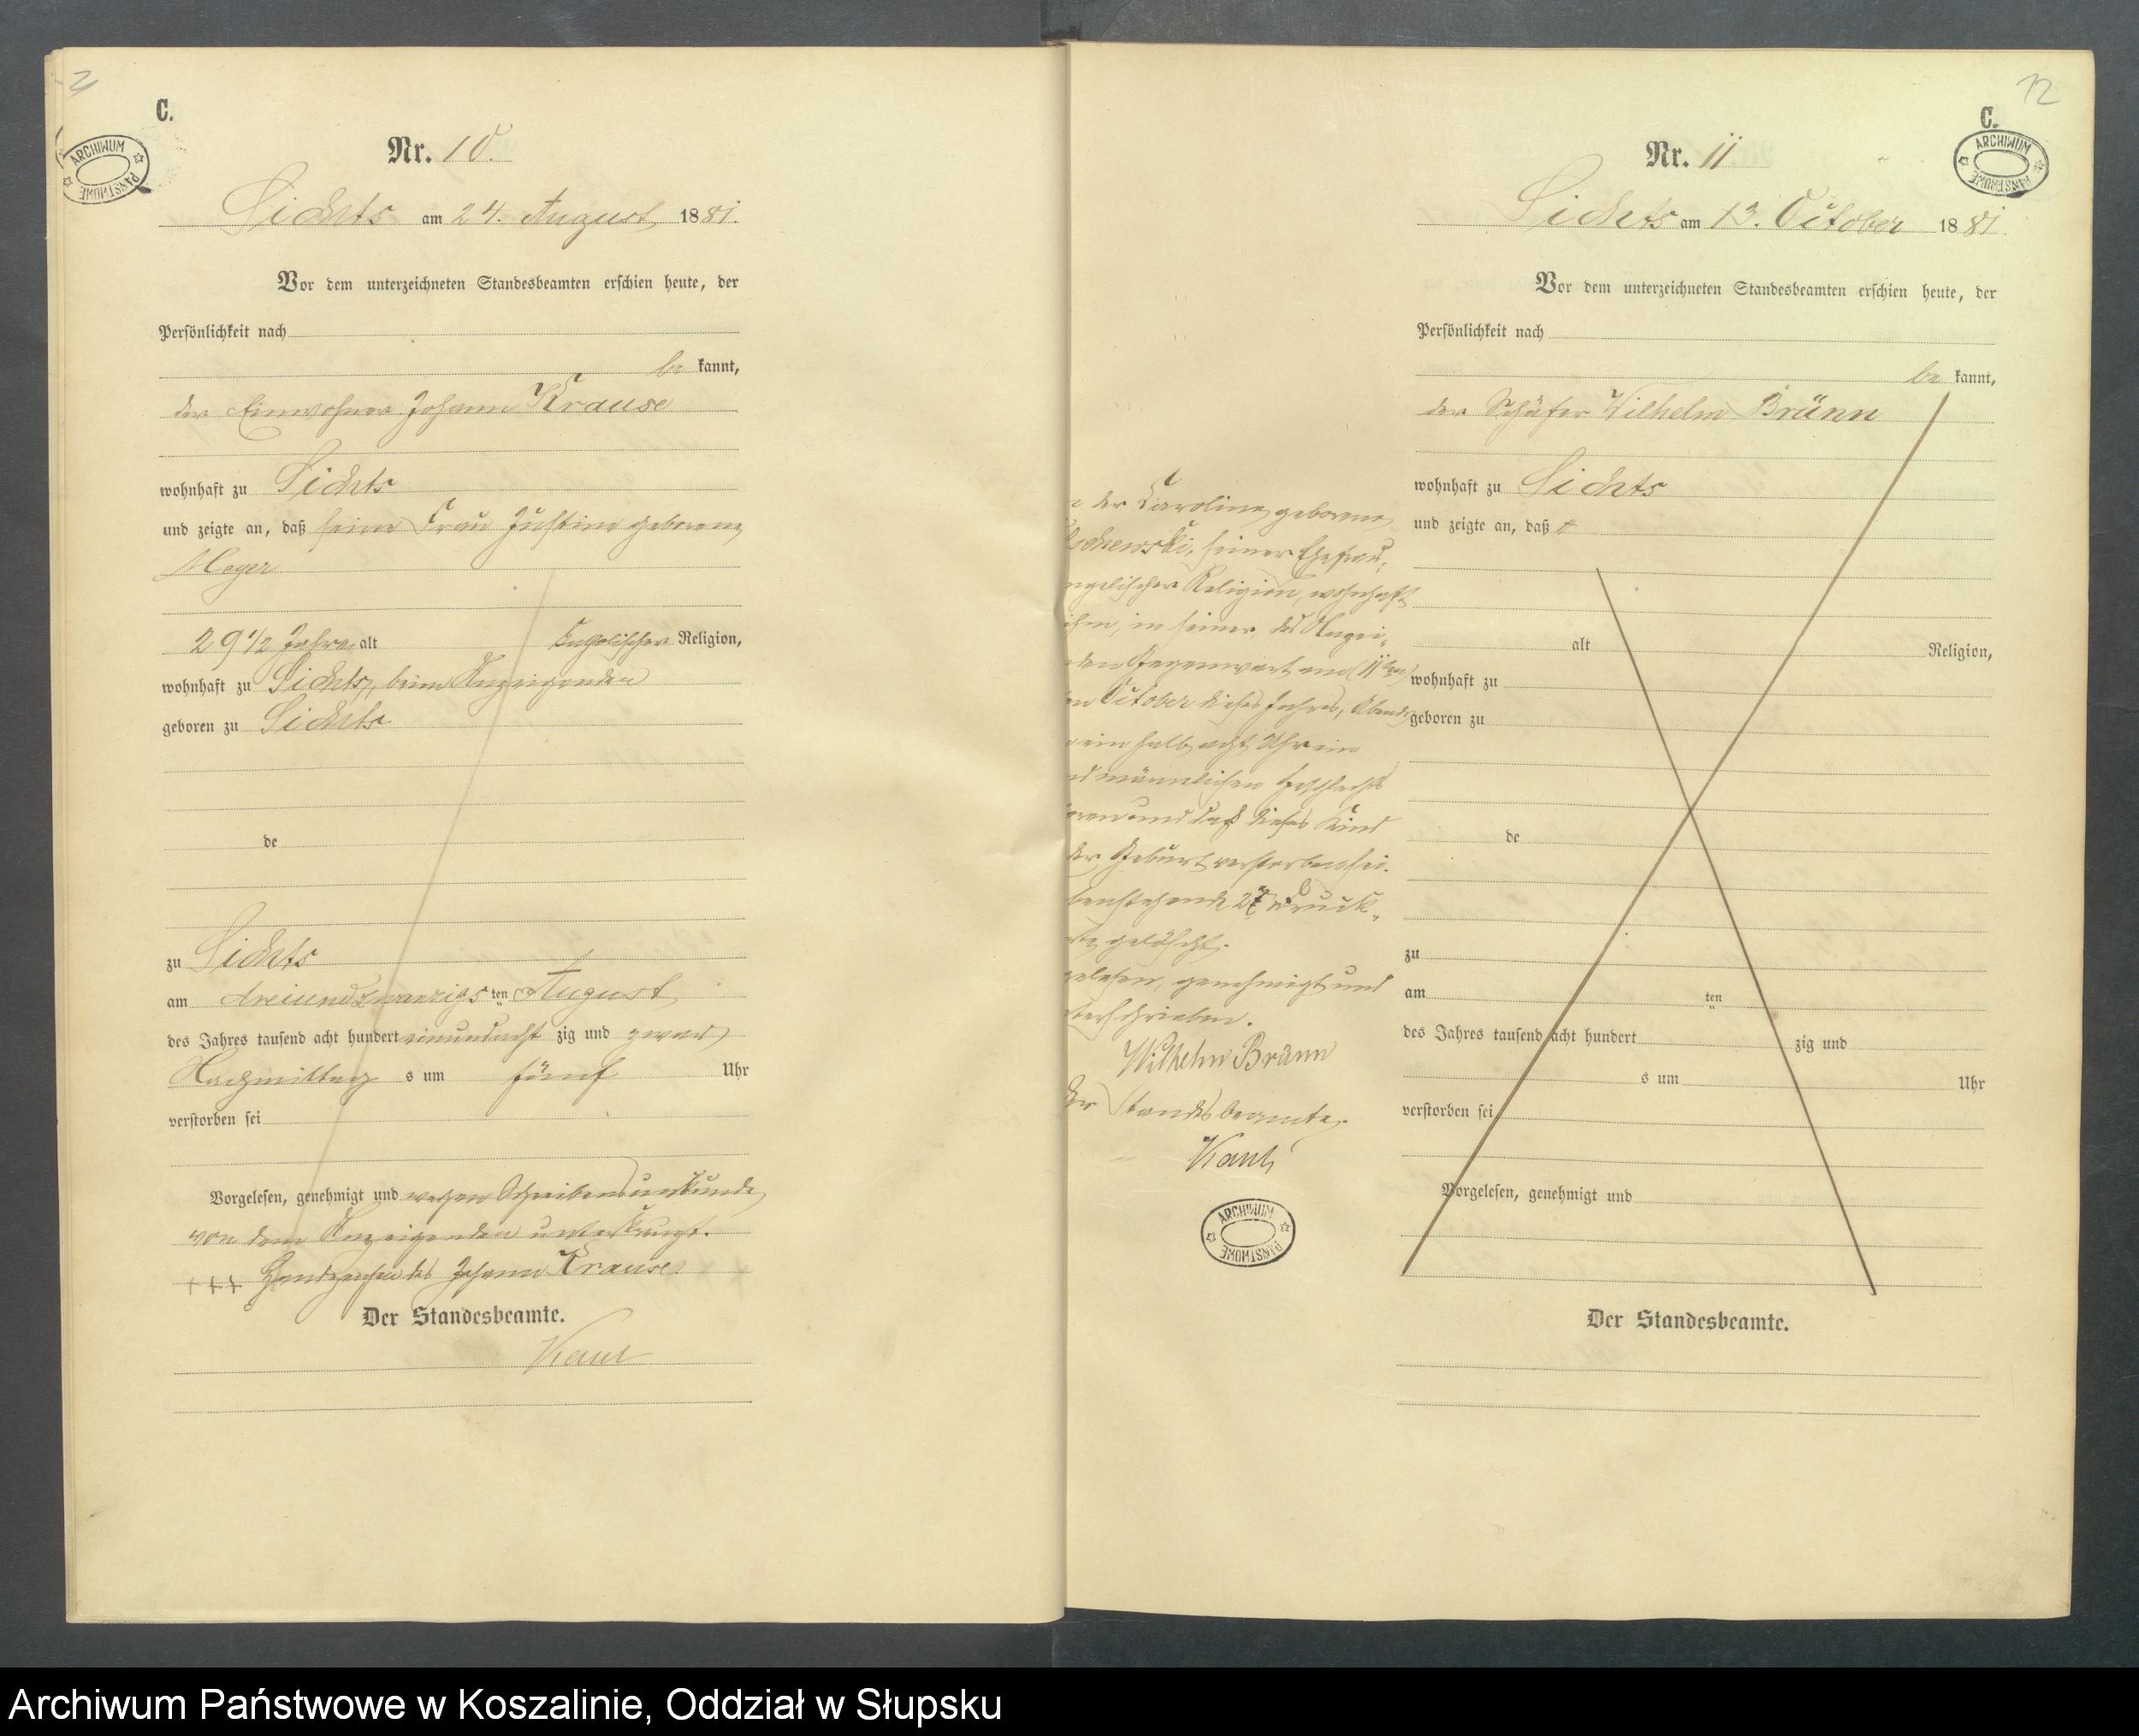 C.
ARCHIWUM PAŃSTWOWE
Nr. 10.
Sichts am 24. August 1881.
Vor dem unterzeichneten Standesbeamten erschien heute, der
Persönlichkeit nach
be kannt,
der Einwohner Johann Krause
wohnhaft zu Sichts
und zeigte an, daß seine Frau Justine geborene
Meyer
29 1/2 Jahre alt katholischer Religion,
wohnhaft zu Sichts, beim Anzeigenden
geboren zu Sichts
de
zu Sichts
am dreiundzwanzigs ten August
des Jahres tausend acht hundert einundacht zig und zwar
Nachmittag s um fünf Uhr
verstorben sei
Vorgelesen, genehmigt und wegen Schreibensunkunde
von dem Anzeigenden unterkreuzt.
+++ Handzeichen des Johann Krause.
Der Standesbeamte.
Kaul
12
C.
ARCHIWUM PAŃSTWOWE
Nr. 11
Sichts am 13. October 1881.
Vor dem unterzeichneten Standesbeamten erschien heute, der
Persönlichkeit nach
be kannt,
der Schäfer Wilhelm Brünn
wohnhaft zu Sichts
und zeigte an, daß
alt Religion,
wohnhaft zu
geboren zu
de
zu
am ten
des Jahres tausend acht hundert zig und
s um Uhr
verstorben sei
Vorgelesen, genehmigt und
Der Standesbeamte.
der Caroline geborene
schewski, seiner Ehefrau,
ngelischer Religion, wohnhaft
ihm, in seiner, des Anzei-
den Gegenwart am (11 ten)
October dieses Jahres, Abends
ein halb acht Uhr ein
d männlichen Geschlechts
oren und daß dieses Kind
der Geburt verstorben sei.
benstehende 27 Druck-
gelöscht.
gelesen, genehmigt und
terschrieben.
Wilhelm Brünn
Der Standesbeamte.
Kaul
ARCHIWUM PAŃSTWOWE
Archiwum Państwowe w Koszalinie, Oddział w Słupsku